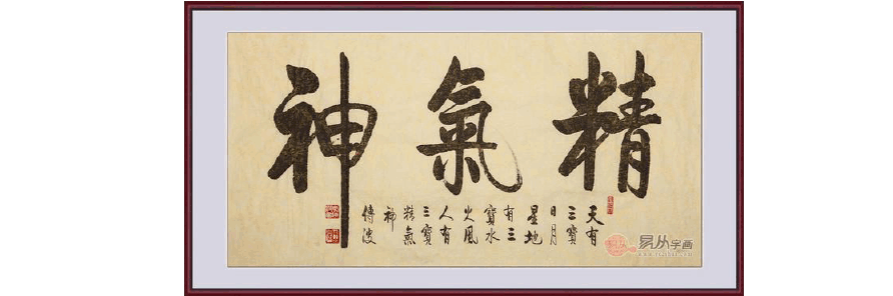 精氣神
天有
三寶
日月
星地
有三
寶水
火風
人有
三寶
精氣
神
傅波
易从字画